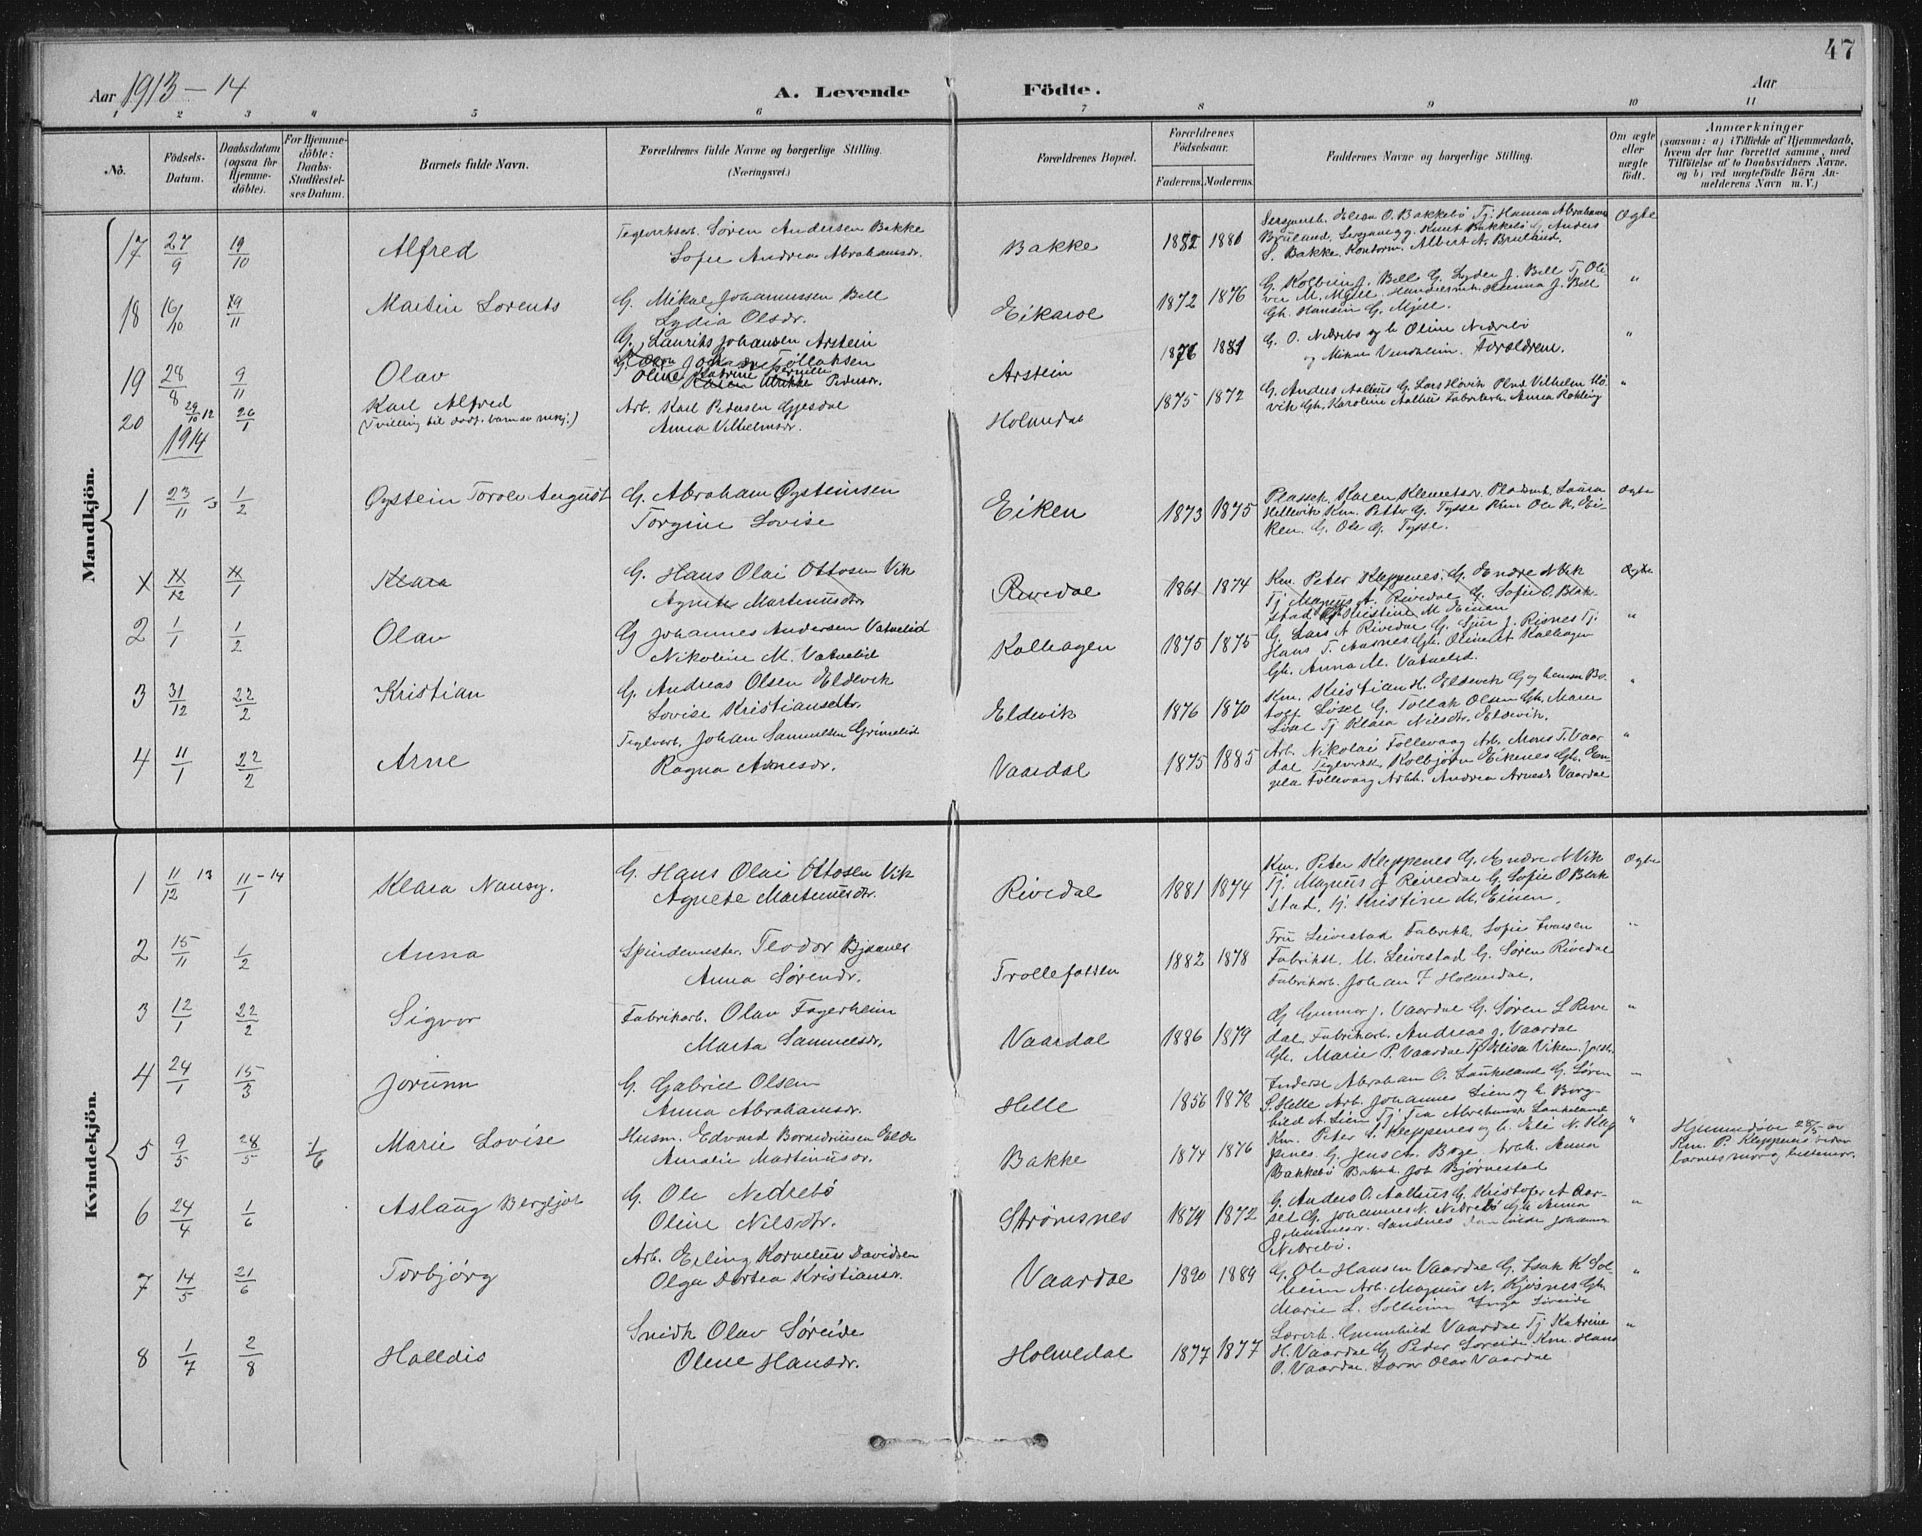 47
Aar 1913-14
A. Levende Födte.
Aar
1 2 3 4 5 6 7 8 9 10 11
No.
Födsels-
Datum.
Daabsdatum
(ogsaa for
Hjemme-
döbte).
For Hjemme-
döbte:
Daabs-
Stadfæstel-
ses Datum.
Barnets fulde Navn.
Forældrenes fulde Navne og borgerlige Stilling.
(Næringsvei.)
Forældrenes Bopæl.
Forældrenes
Födselsaar.
Faderens. Moderens.
Faddernes Navne og borgerlige Stilling.
Om ægte
eller
uægte
födt.
Anmærkninger
(saasom: a) i Tilfælde af Hjemmedaab,
hvem der har forrettet samme, med
Tilföielse af to Daabsvidners Navne.
og b) ved uægtefödte Börn An-
melderens Navn m. V.)
Mandkjön.
17 27/9 19/10 Alfred
Teglverksarb. Søren Andersen Bakke
Sofie Andrea Abrahamsdr.
Bakke 1882 1881
O. Bakkebø Tj. Hanna Abrahams
Bruland, Knut Bakkebø Anders
S. Bakke. Albert A. Bruland.
Ægte
18 16/10 29/11 Martin Lorents
G. Mikal Johannessen Bell
Lydia Olsdr.
1872 1876
G. Kolbein J. Bell G. Lyder J. Bell Tj Oli
M. Mjell. Hanna J. Bell
Gh. Hansin G. Mjell.
"
G. Laurits Johansen Arstein
19 28/8 9/11 Olav
Oline
Arstein 1876 1881
G. O. Nedrebø og h Oline Nedrebø
og Mikal Vendheim. Forældrene.
"
20 29/10 12 26/1 Karl Alfred
(Tvilling til dødf. barn av )
Arb. Karl Pedersen Gjesdal
Anna Vilhelmsdr.
Holmedal 1875 1872
G. Anders Aalhus G. Lars Høvik Vilhelm Hø
vik Gh. Karoline Aalhus Fabrikarb. Anna
"
1914
1 23/11 13 1/2 Øystein Torolv August
G. Abraham Øysteinsen
Torgine Lovise
Eiken 1873 1875
Karen Klemetsdr. Laura
Hellevik Km. Petter G. Tysse Km Ole K. Ei-
ken. G. Ole G. Tysse.
Ægte
X 11/12 11/1 Klara
G. Hans Olai Ottosen Vik
Agnete Martinusdtr
Rivedal 1861 1874
Km. Peter Kleppenes, G. Endre N Vik
Tj Magnus A. Rivedal G. Sofie O. Blak-
stad Kristine M Einen
Ægte
2 1/1 1/2 Olav
G Johannes Andersen Vatnelid
Nikoline M. Vatnelid
Kalhagen 1875 1875
G. Lars A Rivedal G. Sjur J. Risnes Tj.
Hans T. Aasnes Gh. Oline A Kalhagen
Gh. Anna M. Vatnelid.
"
3 31/12 22/2 Kristian
G. Andreas Olsen Eldevik
Lovise Kristiansdtr.
Eldevik 1876 1870
Km. Kristian H. Eldevik G og Bo-
G. Tollak Olsen Gh. Maren
Tj Klara Nilsdtr. Eldevik.
"
4 11/1 22/2 Arne
Teglvarb. Johan Samuelsen Grimelid
Ragna Arnesdr.
Vaardal 1875 1885
Arb. Nikolai Follevaag Arb. Mons T. Vaar
dal Kolbjørn Eikenes Gh. En-
gela Follevaag Andrea Arnesd Vaardal
"
Kvindekjön.
1 11/12 13 11/1-14 Klara Nansy.
G. Hans Olai Ottosen Vik
Agnete Martinusdtr.
Rivedal 1881 1874
Km. Peter Kleppenes G. Endre N Vik
Tj. Magnus A Rivedal G. Sofie O Blak
stad. Tj. Kristine M. Einen.
Ægte
2 15/11 1/2 Anna
Spindemester. Teodor
Anna Sørendr.
Trollefossen 1882 1878
Fru Leivestad Sofie
Fabrikst. M. Leivestad G. Søren Rivedal
Fabrikarb. Johan F Holmedal.
"
3 12/1 22/2 Sigvor
Fabrikarb. Olav Fagerheim
Marta Samuelsdr.
Vaardal 1886 1879
G Gunnar J. Vaardal G. Søren L Rive
dal. Fabrikarb. Andreas J. Vaardal
Gh. Marie P. Vaardal Tj Elisa Viken.
"
4 24/1 15/3 Jorunn
G. Gabriel Olsen
Anna Abrahamsdr.
Helle 1856 1878
Abraham O. Laukeland G. Søren
S. Helle Arb. Johannes Lien og h. Borg-
hild A. Lien Tj Abrahamsd Laukeland
"
5 9/5 28/5 1/6 Marie Lovise
Husm. Edvard
Amalie Martinusdr.
Bakke 1874 1876
Km. Peter S. Kleppenes og h. Eli N. Klep
penes G. Jens Anna
Bakkebø Bjørnestad
"
Hjemmedøbt 28/5 av
Km P. Kleppenes
barnets mor og bestemor.
6 24/4 1/6 Aslaug Bergljot
G. Ole Nedrebø
Oline Nilsdtr.
Strømsnes 1879 1872
G. Anders O. Aalhus G. Kristofer A Aar-
set G. Johannes N. Nedrebø Gh Anna
Sandnes Johanna
Nedrebø.
"
7 14/5 21/6 Torbjørg
Arb. Erling Kornelius Davidsen
Olga Dortea Kristiansdr.
Vaardal 1890 1889
G. Ole Hansen Vaardal G. Isak K Sol-
heim Arb. Magnus N. Kjøsnes Gh.
Marie L. Solheim Inga Søreide
"
8 1/7 2/8 Halldis
Smidh Olav Søreide
Oline Hansdr.
Holmedal 1877 1877
Gunnhild Vaardal Tj Katrine
H. Vaardal G Peder Søreide Km. Hans
O. Vaardal. Lærer Olav Vaardal
"